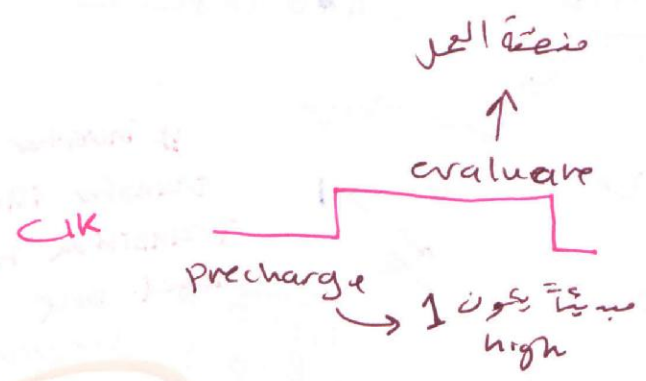 منطقة العمل
evaluate
CLK
precharge
مبدئياً يكون 1
high